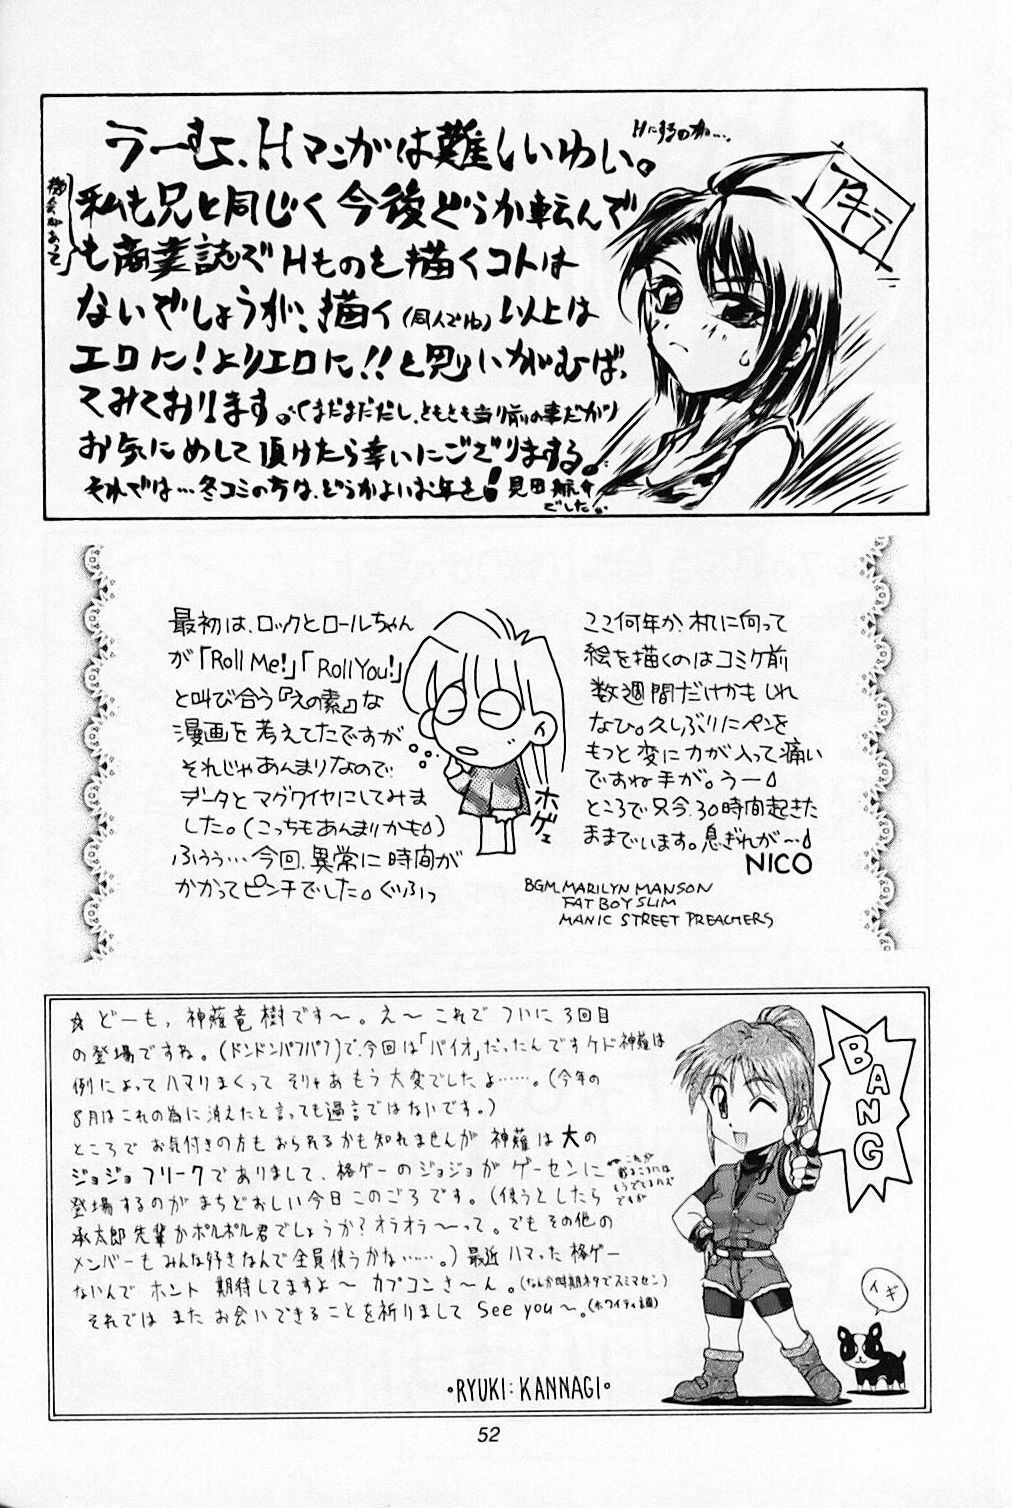 うーむ、Hマンガは難しいわい。
Hにするのが…。
私も兄と同じく今後どうか転んで
も商業誌でHものを描くコトは
機会があって
ないでしょうが、描く(同人でね)以上は
エロに!よりエロに!!と思い
てみております。(まだまだだし、ともとも当り前の事だが)
お気にめして頂けたら幸いにござりまする。
それでは…冬コミの方は、どうかよいお年を!
でした。
アキラ
最初は、ロックとロールちゃん
が「Roll Me!」「Roll You!」
と叫び合う『えの素』な
漫画を考えてたですが
それじゃあんまりなので
データとマグワイヤにしてみま
した。(こっちもあんまりかも)
ふぅぅ…今回、異常に時間が
かかってピンチでした。ぐふっ
ホゲェ
ここ何年か、机に向って
絵を描くのはコミケ前
数週間だけかもしれ
なひ。久しぶりにペンを
もっと変に力が入って痛い
ですね手が。うー
ところで只今、30時間起きた
ままでいます。息ぎれが…
NICO
BGM. MARILYN MANSON
FAT BOY SLIM
MANIC STREET PREACHERS
☆どーも,神薙竜樹です〜。え〜これでついに3回目
の登場ですね。(ドンドンパフパフ)で、今回は「バイオ」だったんですケド神薙は
例によってハマリまくってそりゃあもう大変でしたよ……。(今年の
8月はこれの為に消えたと言っても過言ではないです。)
ところでお気付きの方もおられるかも知れませんが神薙は大の
ジョジョフリークでありまして、格ゲーのジョジョがゲーセンに
←これが
出るころには
もうでてるハズ
ですが
登場するのがまちどおしい今日このごろです。(使うとしたら
承太郎先輩かポルポル君でしょうか?オラオラ〜って。でもその他の
メンバーもみんな好きなんで全員使うかな……。)最近ハマった格ゲー
ないんでホント期待してますよ〜カプコンさ〜ん。(なんか時期ネタでスミマセン)
それではまたお会いできることを祈りましてSee you〜。(ホワイティ調)
•RYUKI:KANNAGI•
BANG
イギ
52